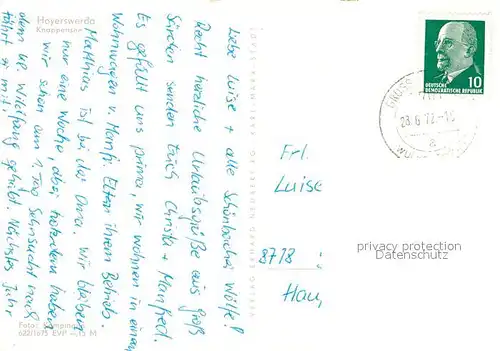 Hoyerswerda
Knappensee
Liebe Luise + alle Schönbacher Wölfe!
Recht herzliche Urlaubsgrüße aus Groß
Särchen senden Euch Christa + Manfred.
Es gefällt uns prima, wir wohnen in einem
Wohnwagen v. Manfr. Eltern ihrem Betrieb.
Matthias ist bei der Oma. Wir bleiben
nur eine Woche, aber trotzdem haben
wir schon am 1. Tag Sehnsucht nach
dem Wildfang gehabt. Nächstes Jahr
fährt er mit.
Foto:
622/1675 EVP
VERLAG ERHARD NEUBERT KG KARL-MARX-STADT
10
DEUTSCHE
DEMOKRATISCHE REPUBLIK
Frl.
Luise
8718
Hau
privacy protection
Datenschutz